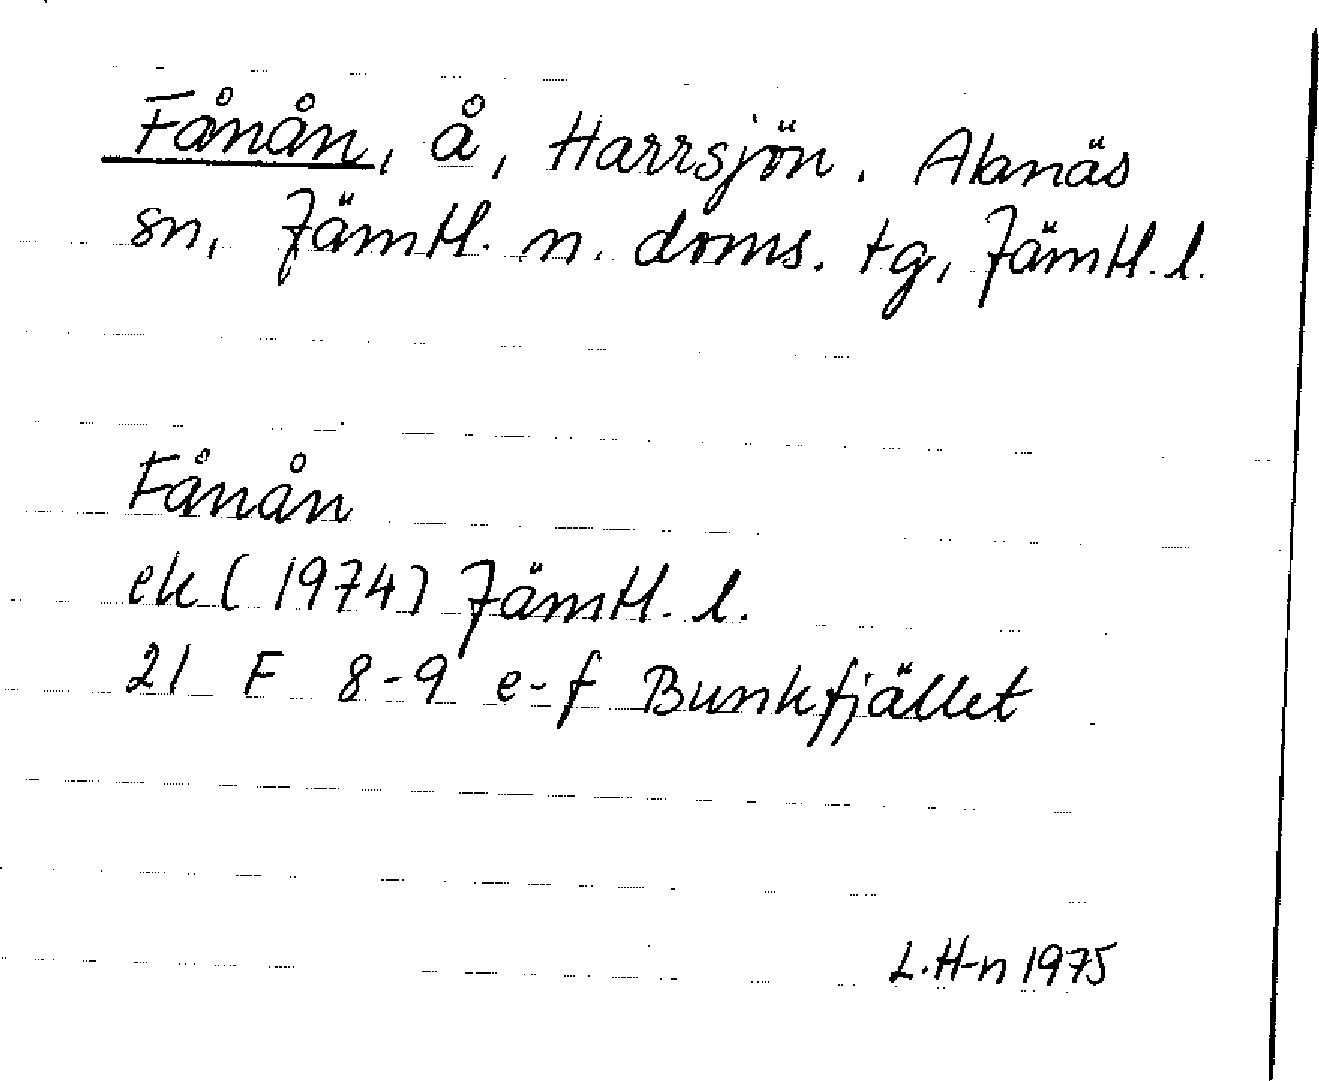 Fånån, å, Harrsjön. Alanäs
sn, Jämtl. n. doms. tg, Jämtl. l.
Fånån
ek (1974) Jämtl. l.
21 F 8-9 e-f Bunkfjället
L.H-n 1975